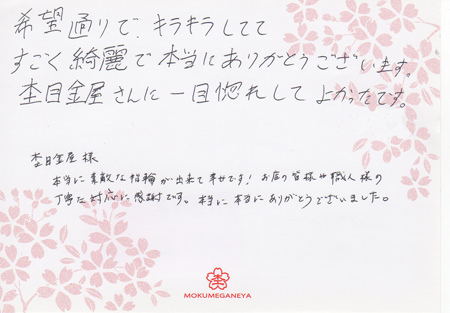 希望通りで、キラキラしてて
すごく綺麗で本当にありがとうございます。
杢目金屋さんに一目惚れしてよかったです。
杢目金屋様
本当に素敵な指輪が出来て幸せです！お店の皆様や職人様の
丁寧な対応に感謝です。本当に本当にありがとうございました。
杢
MOKUMEGANEYA